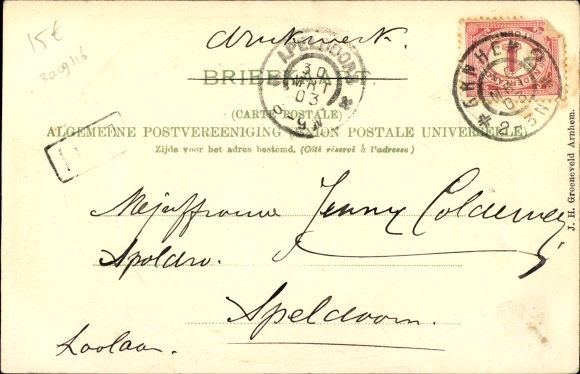 15€
300916
drukwerk.
BRIEFKAART.
(CARTE POSTALE)
ALGEMEENE POSTVEREENIGING (UNION POSTALE UNIVERSELLE)
Zijde voor het adres bestemd. (Côté réservé à l'adresse)
APELDOORN
30
MRT
03
ARNHEM
03
NEDERLAND
1
Mejuffrouw Jenny
Apeldoorn.
Loolaan.
J. H. Groeneveld Arnhem.